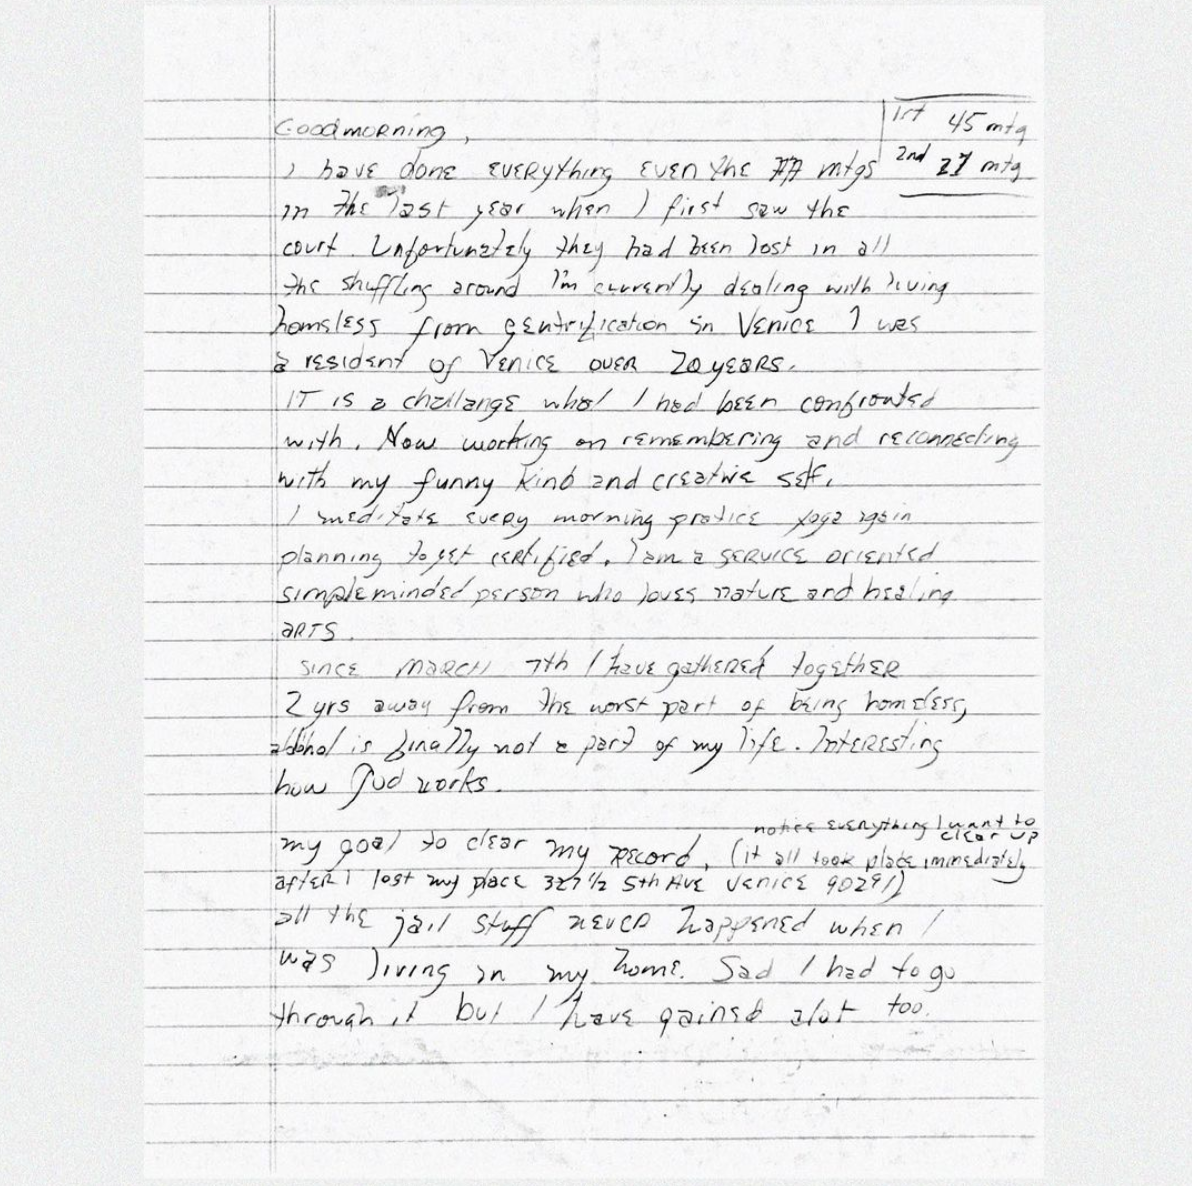 Goodmorning,
1st 45 mtg
I have done everything even the AA mtgs
2nd 27 mtg
in the last year when I first saw the
court. Unfortunately they had been lost in all
the shuffling around I'm currently dealing with living
homsless from gentrification in Venice I was
a resident of Venice over 20 years.
IT is a challange what I had been confronted
with. Now working on remembering and reconnecting
with my funny kind and creative self.
I meditate every morning pratice yoga again
planning to get certified. I am a service oriented
simpleminded person who loves nature and healing
arts.
since March 7th I have gathered together
2 yrs away from the worst part of being homeless,
alcohol is finally not a part of my life. Interesting
how God works.
notice everything I want to
clear up
my goal to clear my record, (it all took place immediately
after I lost my place 327 1/2 5th Ave Venice 90291)
all the jail stuff never happened when I
was living in my home. Sad I had to go
through it but I have gained alot too.